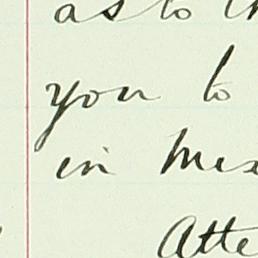 as to
you to
in
Atte